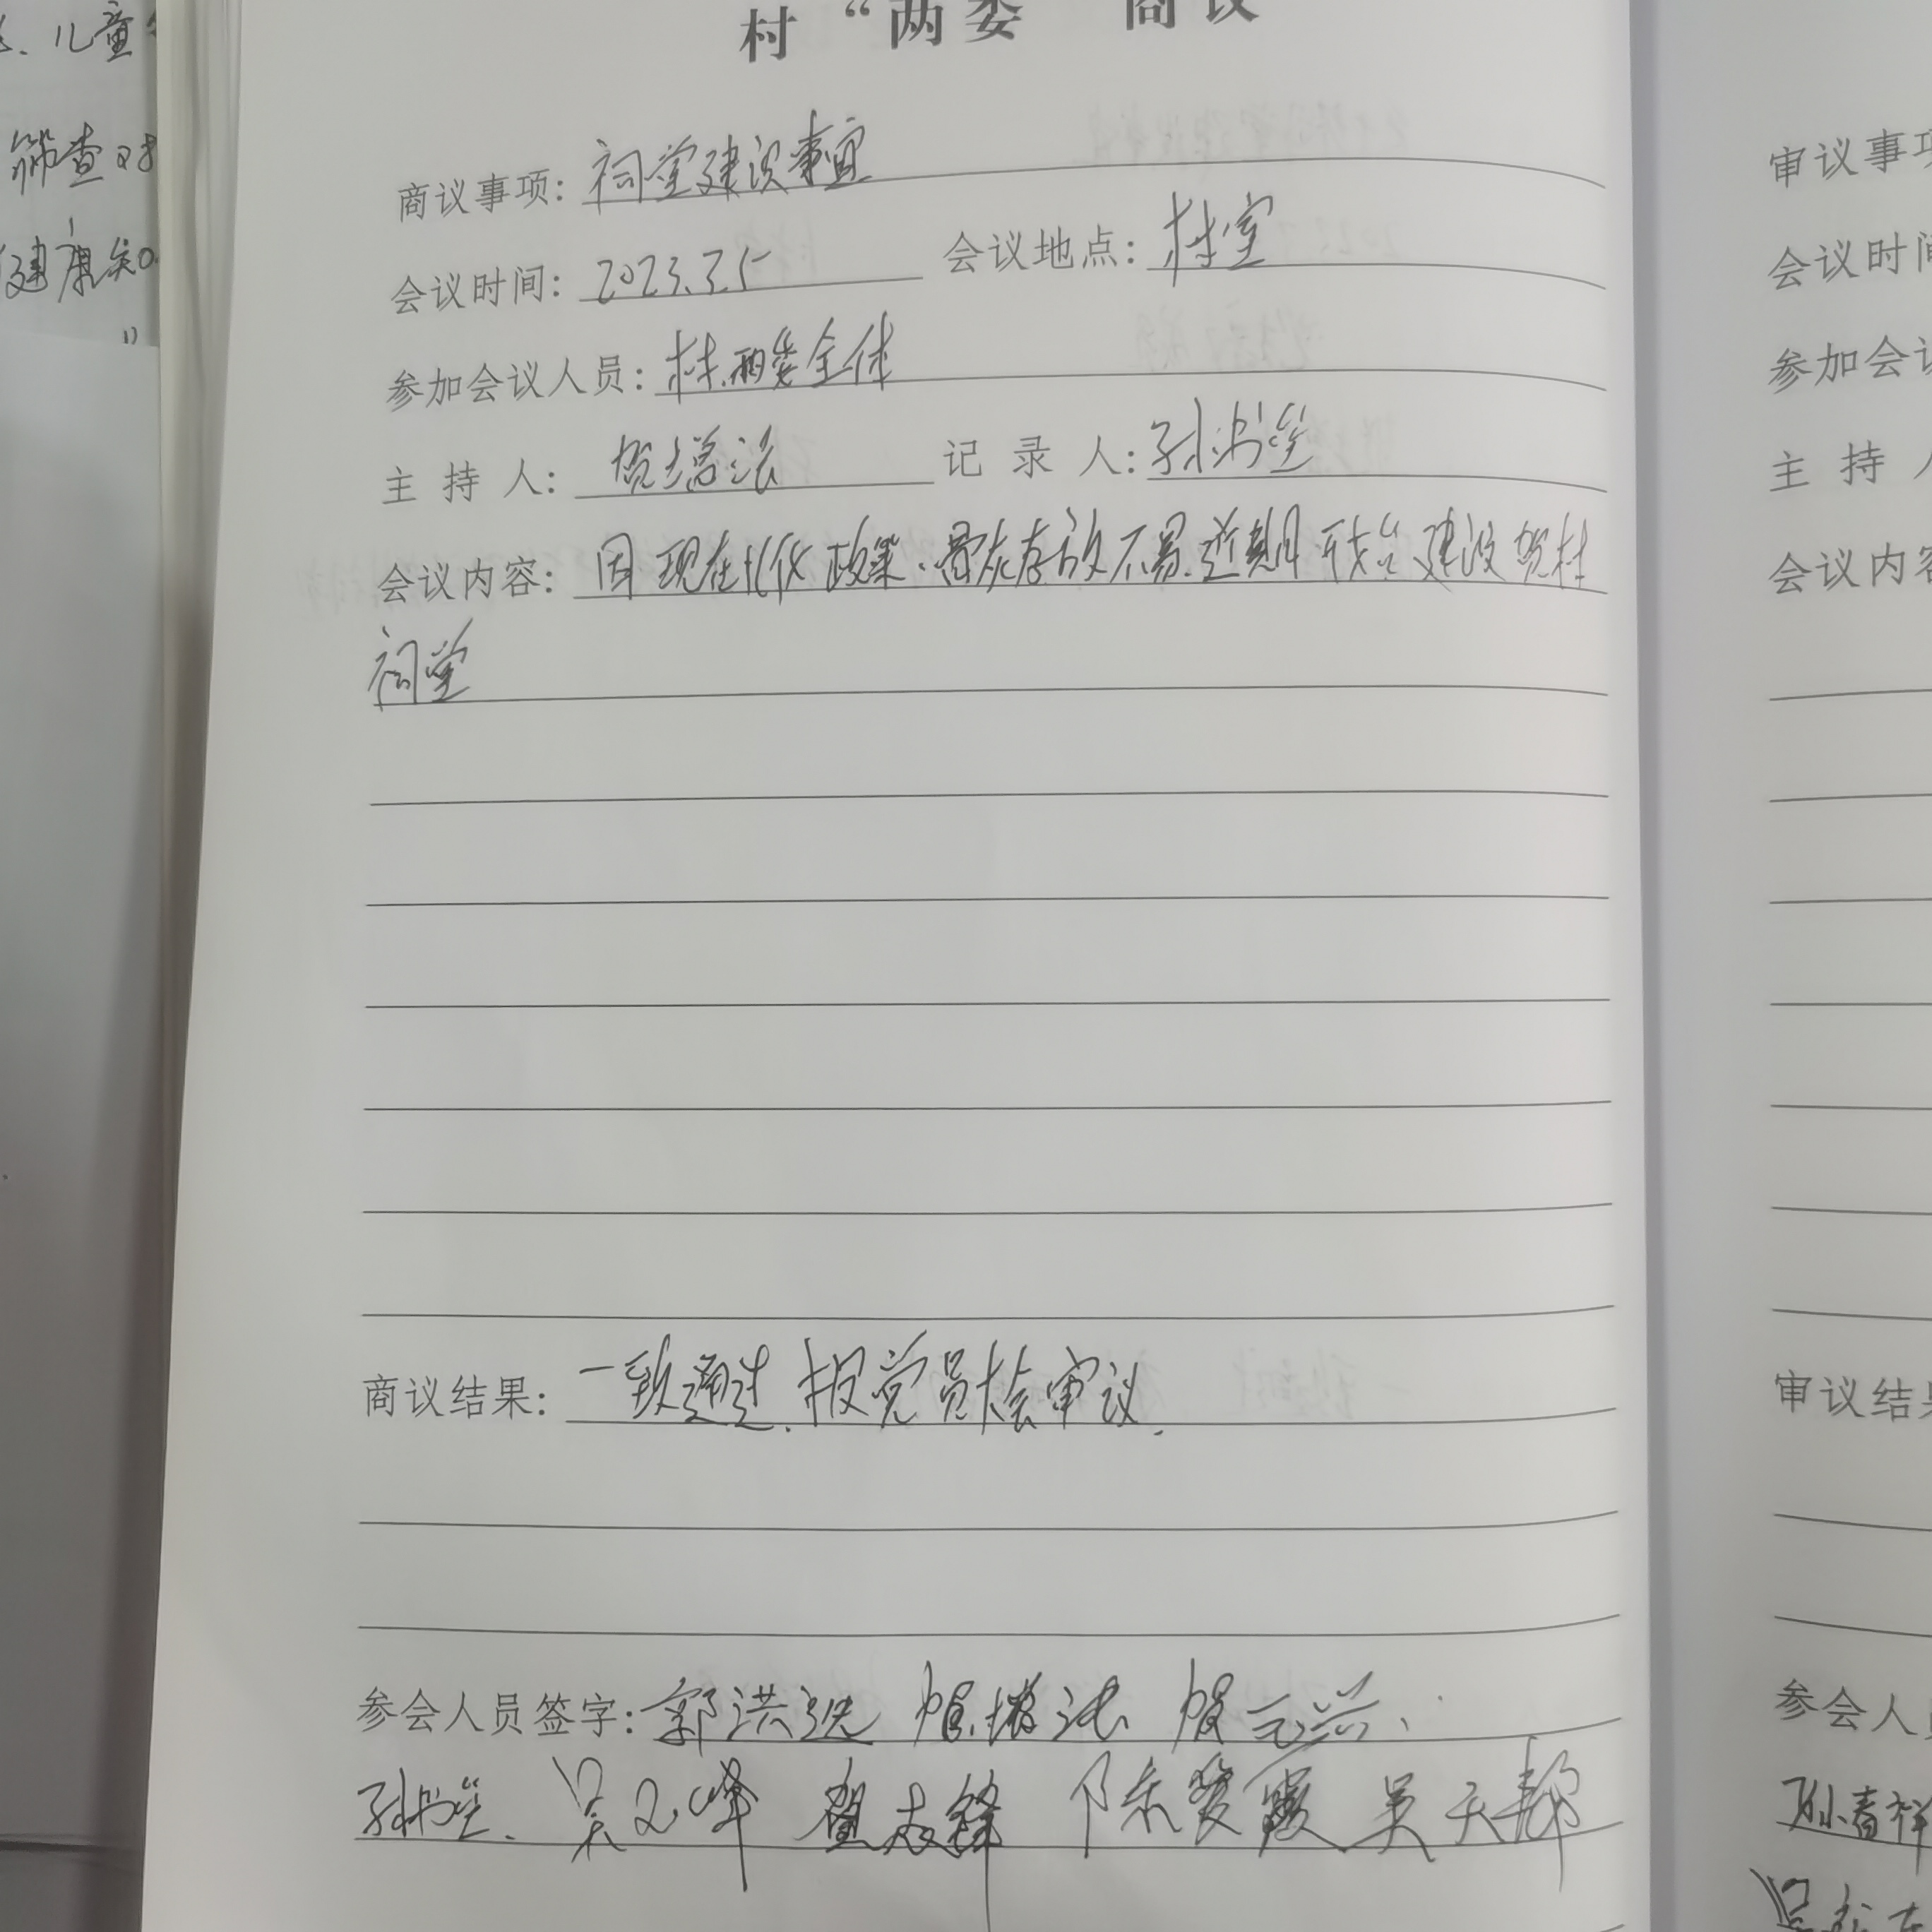 村“两委”商议
商议事项：祠堂建设事宜
会议时间：2023.3.5 会议地点：村室
参加会议人员：村两委全体
主持人：贺增法 记录人：孙书堂
会议内容：因现在火化政策.骨灰存放不易.近期开始建设贺村
祠堂
商议结果：一致通过.报党员大会审议.
参会人员签字：郭洪 贺增法 贺元兴、
孙书堂. 吴文峰 志锋 陈爱霞 吴天帮
儿童
筛查对
健康知
审议事项
会议时间
参加会议
主持人
会议内容
审议结果
参会人员
孙春祥